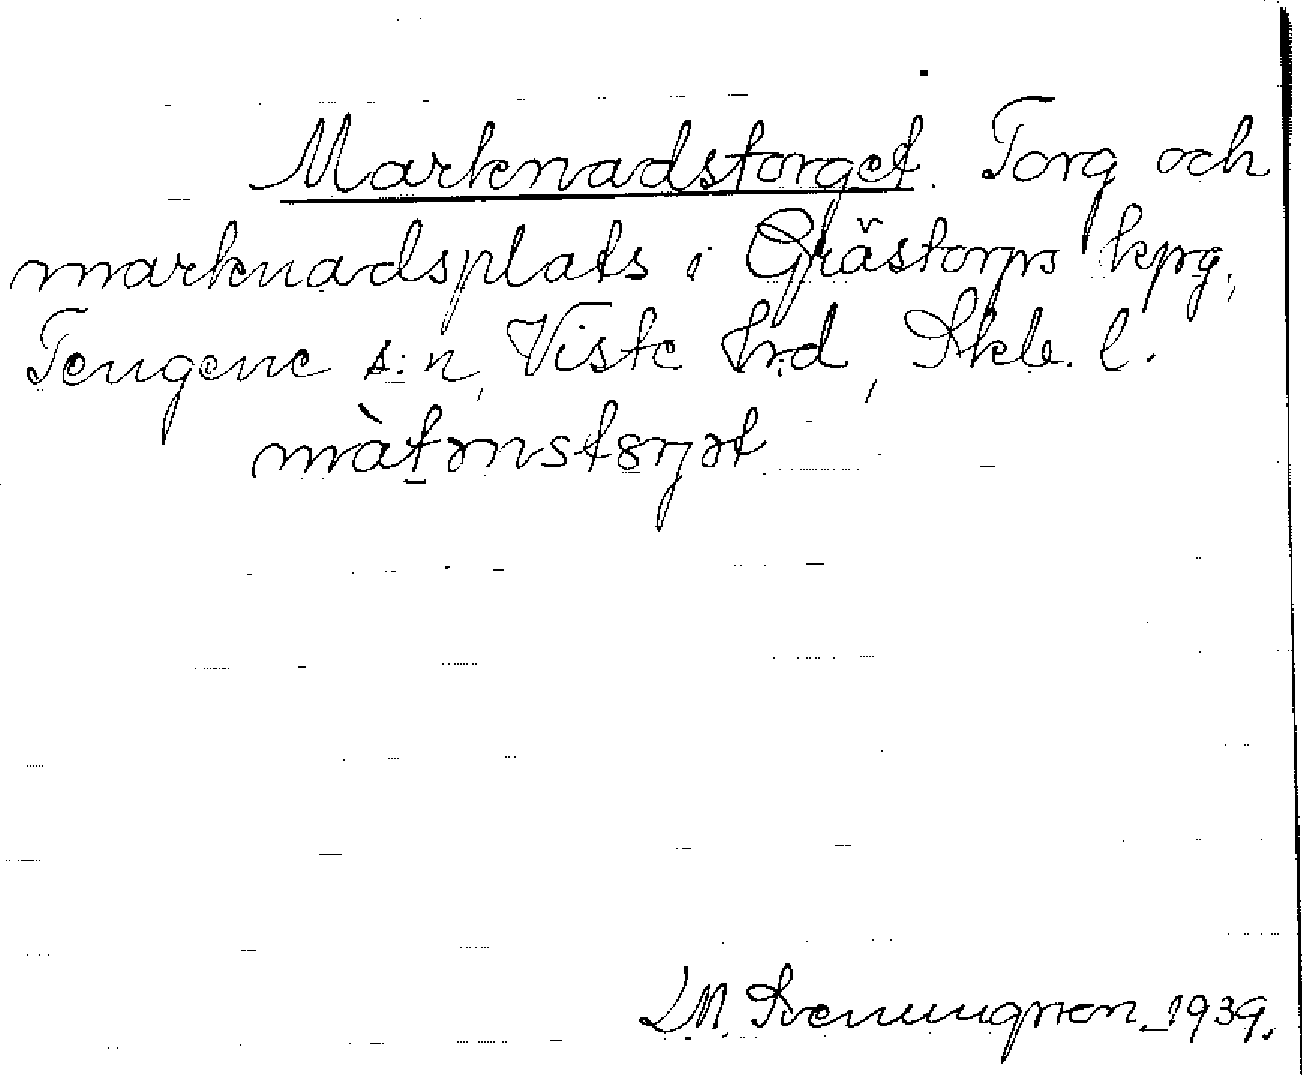 Marknadstorget. Torg och
marknadsplats i Grästorps kpg,
Tengene s:n, Viste hrd, Skb. l.
màtənstsrjət
LM. Svenungson 1939.